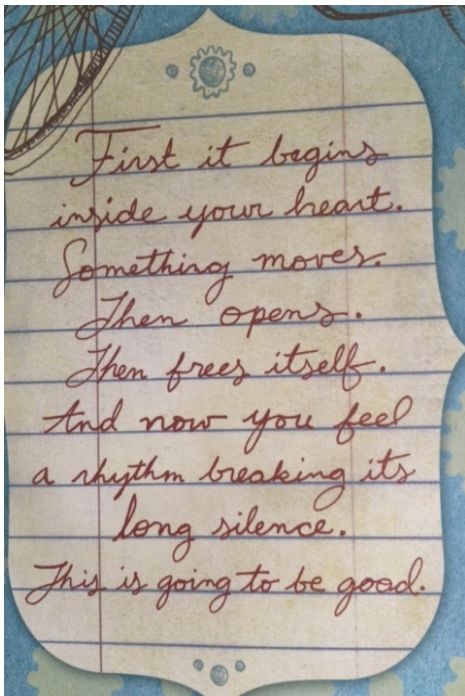 First it begins
inside your heart.
Something moves.
Then opens.
Then frees itself.
And now you feel
a rhythm breaking its
long silence.
This is going to be good.